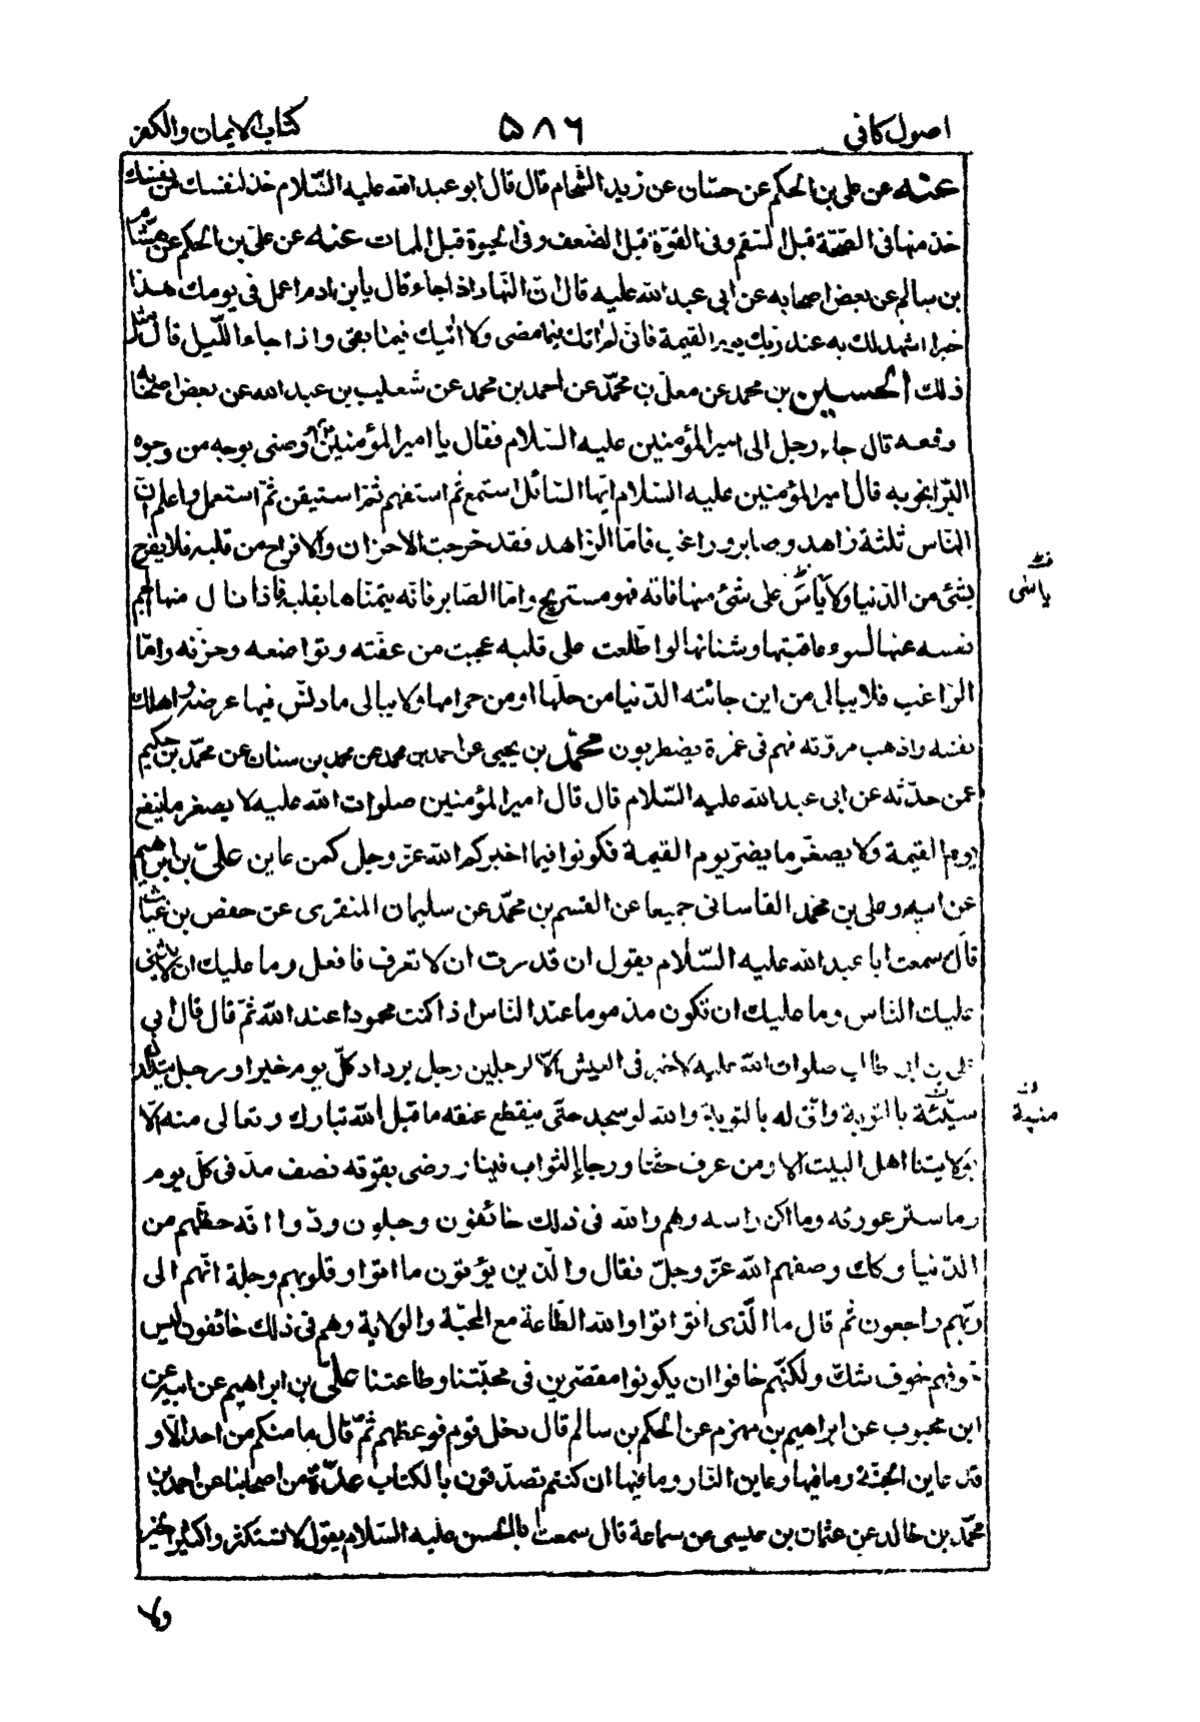 اصول كافى ۵۸۶ كتاب الايمان والكفر
عنه عن على بن الحكم عن حسّان عن زيد الشّحام قال قال ابو عبد الله عليه السّلام خذ لنفسك من نفسك
خذ منها فى الصّحّة قبل السّقم وفى القوّة قبل الضعف وفى الحيوة قبل الممات عنه عن علىّ بن الحكم عن هشام
بن سالم عن بعض اصحابه عن ابى عبد الله عليه قال انّ النّهار اذا جاء قال يا بن ادم اعمل فى يومك هذا
خيرا اشهد لك به عند ربّك يوم القيمة فانّى لم اتك فيما مضى ولا اتيك فيما بقى واذا جاء اللّيل قال مثل
ذلك الحسين بن محمد عن معلّى بن محمّد عن احمد بن محمد عن شعيب بن عبد الله عن بعض اصحابه
رفعه قال جاء رجل الى امير المؤمنين عليه السّلام فقال يا امير المؤمنين اوصنى بوجه من وجوه
البرّ انجو به قال امير المؤمنين عليه السّلام ايّها السّائل استمع ثم استفهم ثمّ استيقن ثمّ استعمل واعلم انّ
النّاس ثلثة زاهد وصابر وراغب فامّا الزّاهد فقد خرجت الاحزان والافراح من قلبه فلا يفرح
بشئ من الدّنيا ولا يأس على شئ منها فاته فهو مستريح وامّا الصّابر فانّه يتمنّاها بقلبه فاذا نال منها الجم
ياسى
نفسه عنها لسوء عاقبتها وشنانها لو اطّلعت على قلبه عجبت من عفّته وتواضعه وحزنه وامّا
الرّاغب فلا يبالى من اين جائته الدّنيا من حلّها او من حرامها ولا يبالى ما دنّس فيها عرضه واهلك
نفسه واذهب مروّته فهم فى غمرة يضطربون محمّد بن يحيى عن احمد بن محمد عن محمد بن سنان عن محمّد بن حكيم
عمن حدّثه عن ابى عبد الله عليه السّلام قال قال امير المؤمنين صلوات الله عليه لا يصغر ما ينفع
يوم القيمة ولا يصغّر ما يضرّ يوم القيمة فكونوا فيما اخبركم الله عزّ وجل كمن عاين علىّ بن ابراهيم
عن ابيه وعلى بن محمّد القاسانى جميعا عن القسم بن محمّد عن سليمان المنقرى عن حفص بن غياث
قال سمعت ابا عبد الله عليه السّلام يقول ان قدرت ان لا تعرف فافعل وما عليك ان لا يثنى
عليك النّاس وما عليك ان تكون مذموما عند النّاس اذا كنت محمودا عند الله ثمّ قال قال ابى
على بن ابى طالب صلوات الله عليه لا خير فى العيش الّا لرجلين رجل يزداد كلّ يوم خيرا ورجل يتدارك
سيّئة بالتوبة وانّى له بالتوبة والله لو سجد حتّى ينقطع عنقه ما قبل الله تبارك وتعالى منه الّا
منيّة
بولايتنا اهل البيت الا ومن عرف حقّنا ورجا الثواب فينا ورضى بقوته نصف مدّ فى كلّ يوم
وما ستر عورته وما اكن راسه وهم والله فى ذلك خائفون وجلون ودّوا انّه حظّهم من
الدّنيا وكك وصفهم الله عزّ وجلّ فقال والّذين يؤتون ما اتوا وقلوبهم وجلة انّهم الى
ربّهم راجعون ثم قال ما الّذى اتوا اتوا والله الطّاعة مع المحبّة والولاية وهم فى ذلك خائفون ليس
خوفهم خوف شكّ ولكنّهم خافوا ان يكونوا مقصّرين فى محبّتنا وطاعتنا علىّ بن ابراهيم عن ابيه عن
ابن محبوب عن ابراهيم بن مهزم عن الحكم بن سالم قال دخل قوم فوعظهم ثمّ قال ما منكم من احد الّا و
قد عاين الجنّة وما فيها وعاين النّار وما فيها ان كنتم تصدّقون بالكتاب عدّة من اصحابنا عن احمد بن
محمّد بن خالد عن عثمان بن عيسى عن سماعة قال سمعت ابا الحسن عليه السّلام يقول لا تستكثروا كثير الخير
ولا